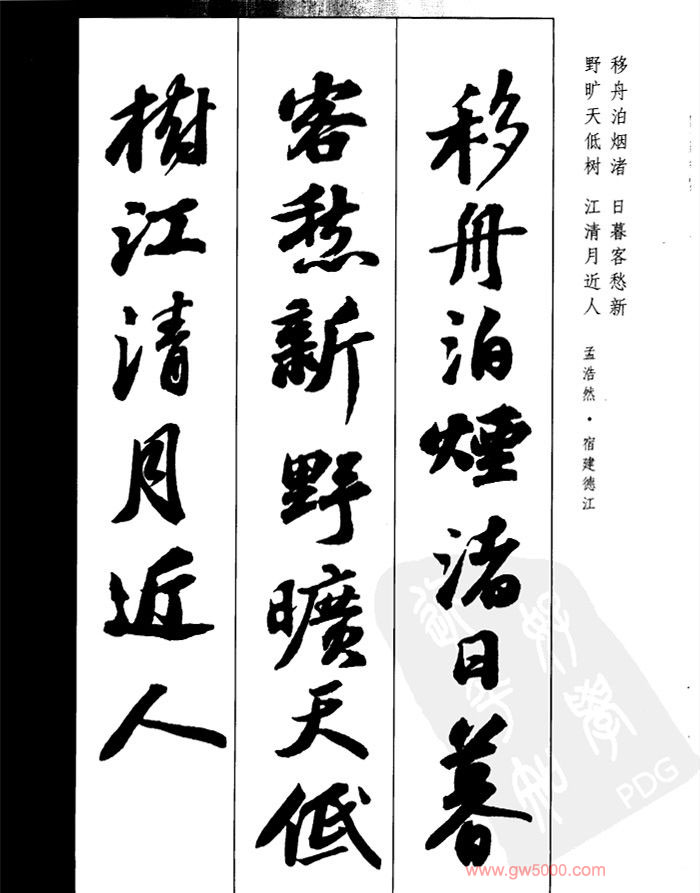 移舟泊烟渚　日暮客愁新
野旷天低树　江清月近人
孟浩然·宿建德江
移舟泊煙渚日暮
客愁新野曠天低
樹江清月近人
PDG
www.gw5000.com